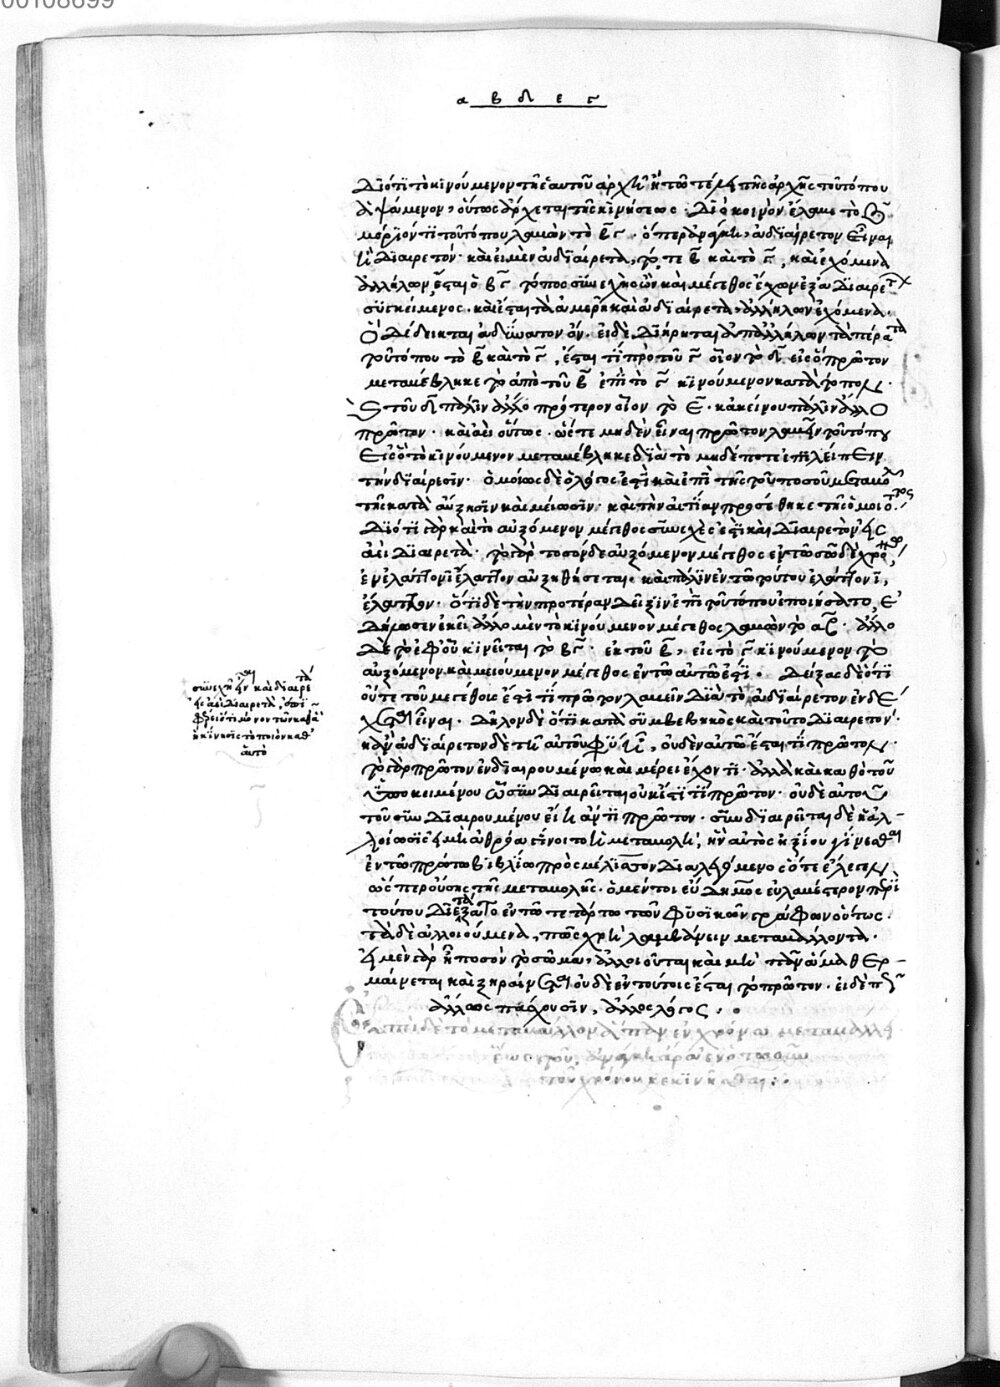 00108699
α β δ ε γ
Διότι τὸ κινούμενον τῆς ἑαυτοῦ ἀρχῆ ἢ τῶ τέλει τῆς ἀρχῆς τοῦ τόπου
ἁψάμενον, οὕτως ἄρχεται τῆς κινήσεως. Διὸ κοινὸν ἔλαβε τὸ β
μόριόν τι τοῦ τόπου λαβὼν τὸ βγ. ὅπερ ἀνάγκη, ἀδιαίρετον εἶναι
ἢ διαιρετόν. καὶ εἰ μὲν ἀδιαίρετα, τό, τε β καὶ τὸ γ, καὶ ἐχόμενα
ἀλλήλων, ἔσται ὁ βγ τόπος συνεχὴς ὢν καὶ μέγεθος ἔχων ἐξ ἀδιαιρέτων
συγκείμενος. καὶ ἔσται τὰ ἀμερῆ καὶ ἀδιαίρετα, ἀλλήλων ἐχόμενα.
ὃ δέδεικται ἀδύνατον ὄν. εἰ δὲ διήρηται ἀπ' ἀλλήλων τὰ πέρατα
τοῦ τόπου τὸ β καὶ τὸ γ, ἔσται τι πρὸ τοῦ γ οἷον τὸ δ, εἰς ὃ πρῶτον
μεταβέβληκε τὸ ἀπὸ τοῦ β ἐπὶ τὸ γ κινούμενον κατὰ τόπον.
τοῦ δ πάλιν ἄλλο πρότερον οἷον τὸ ε. κἀκείνου πάλιν ἄλλο
πρῶτον. καὶ ἀεὶ οὕτως. ὥστε μηδὲν εἶναι πρῶτον λαβεῖν τοῦ τόπου
εἰς ὃ τὸ κινούμενον μεταβέβληκε διὰ τὸ μηδέποτε ἐπιλείπειν
τὴν διαίρεσιν. ὁμοίως δὲ ὁ λόγος ἐστὶ καὶ ἐπὶ τῆς τοῦ ποσοῦ μεταβολῆς
τῆς κατὰ αὔξησιν καὶ μείωσιν. καὶ τὴν αἰτίαν προσέθηκε τῆς ὁμοιότητος
Διότι γὰρ καὶ τὸ αὐξόμενον μέγεθος συνεχές ἐστι καὶ διαιρετὸν εἰς
ἀεὶ διαιρετά. τὸ γὰρ τοσόνδε αὐξόμενον μέγεθος ἐν τοσῶδε χρόνω
ἐν ἐλάττονι ἔλαττον αὐξηθήσεται. καὶ πάλιν ἐν τῶ τούτου ἐλάττονι,
ἔλαττον. ὅτι δὲ τὴν προτέραν δεῖξιν ἐπὶ τοῦ τόπου ἐποιήσατο, ἐ
δήλωσεν ἐκεῖ ἄλλο μὲν τὸ κινούμενον μέγεθος λαβὼν τὸ αγ. ἄλλο
δὲ τὸ ἐφ' οὗ κινεῖται τὸ βγ. ἐκ τοῦ β, εἰς τὸ γ κινούμενον τὸ
αὐξόμενον καὶ μειούμενον μέγεθος ἐν τῶ αὐτῶ ἐστί. Δείξας δὲ ὅτι
οὔτε τοῦ μεγέθους ἐστί τι πρῶτον λαβεῖν διὰ τὸ ἀδιαίρετον ἐνδέ
χεσθαι εἶναι. Δῆλον δὲ ὅτι κατὰ συμβεβηκὸς καὶ τοῦτο διαιρετόν.
κἂν ἀδιαίρετον δὲ τῆ αὐτοῦ φύσει ῆ, οὐδὲν αὐτῶ ἔσται τι πρῶτον.
τὸ γὰρ πρῶτον ἐν διαιρουμένω καὶ μέρει ἔχοντι. ἀλλὰ καὶ καθὸ τοῦ
ὑποκειμένου ᾧ συνδιαιρεῖται οὐκ ἔστι τι πρῶτον. οὐδὲ αὐτοῦ
τοῦ συνδιαιρουμένου εἴη ἄν τι πρῶτον. συνδιαιρεῖται δὲ ἡ ἀλ-
λοίωσις εἰ μὴ ἀθρόα γίνοιτο ἡ μεταβολή, ἣν αὐτὸς ἠξίου γίνεσθαι
ἐν τῶ πρώτω βιβλίω πρὸς μέλισσον διαλεγόμενος ὅτε ἔλεγεν
ὥσπερ οὔσης τῆς μεταβολῆς. ὁ μέντοι εὔδημος εὐλαβέστερον περὶ
τούτου διετάξατο ἐν τῶ τετάρτω τῶν φυσικῶν γράφων οὕτως.
τὰ δὲ ἀλλοιούμενα, πῶς χρὴ λαμβάνειν μεταβάλλοντα.
εἰ μὲν γὰρ ᾗ ποσὸν τὸ σῶμα, ἀλλοιοῦται καὶ μὴ πᾶν ἅμα θερ-
μαίνεται καὶ ξηραίνεται οὐδὲ ἐν τούτοις ἔσται τὸ πρῶτον. εἰ δέ πη
ἄλλως πάσχουσιν, ἄλλος λόγος.
Ἐπεὶ δὲ τὸ μεταβάλλον ἅπαν ἐν χρόνω μεταβάλλει
ἕως τοῦ, ἀνάγκη ἄρα ἐν
τοῦ χρόνου κεκινῆσθαι:
συνεχῆ ἦν καὶ διαιρετὰ
εἰς ἀεὶ διαιρετά, ὅτι
φησὶν ὅτι μόνον τῶν κατὰ
κίνησις τὸ ποιὸν καθ'
αὑτὸ